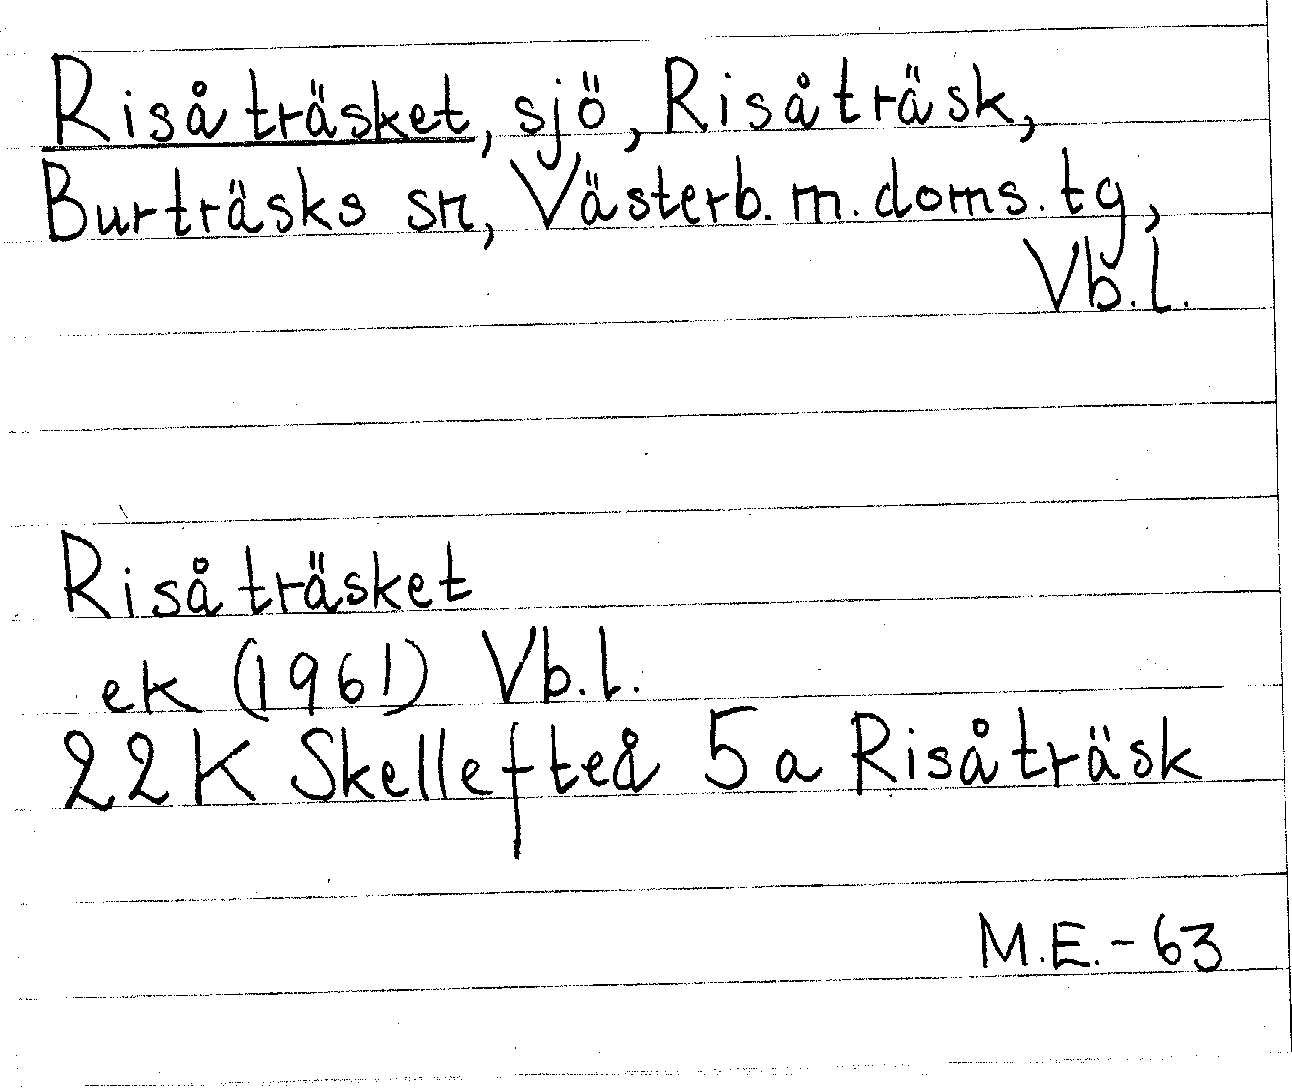 Risåträsket, sjö, Risåträsk,
Burträsks sn, Västerb. m. doms. tg,
Vb. l.
Risåträsket
ek (1961) Vb. l.
22K Skellefteå 5a Risåträsk
M.E. - 63